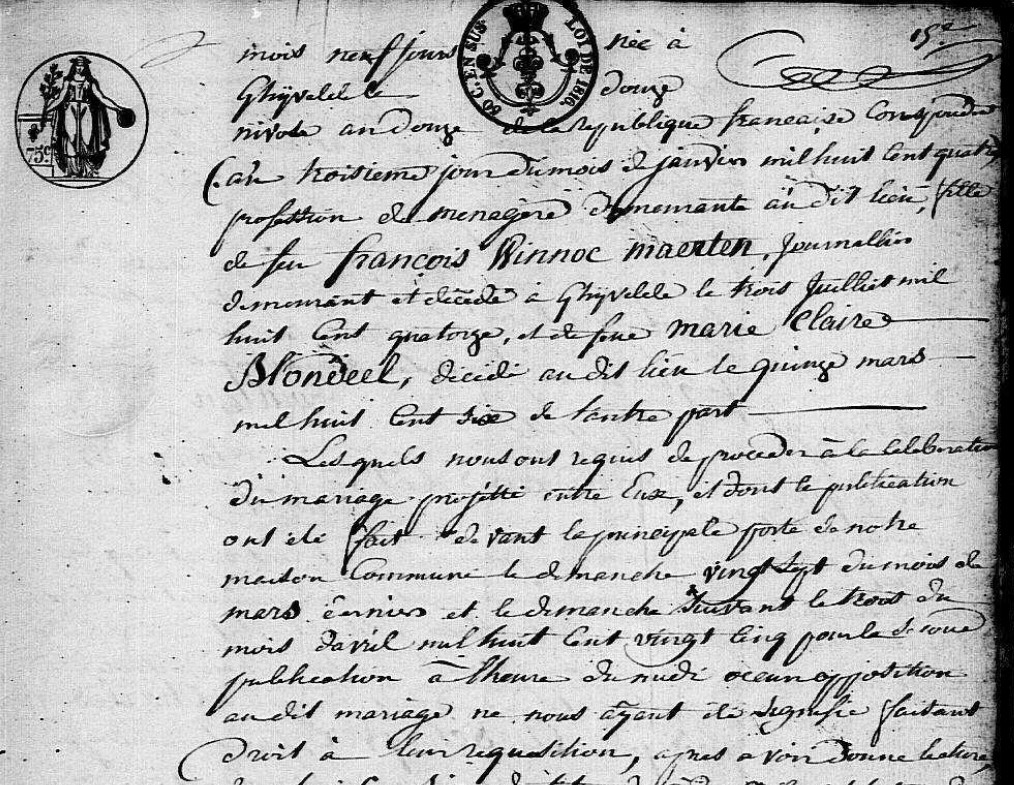 15e
75c
50 C. EN SUS
LOI DE 1816
mois neuf jours née à
Ghÿvelde le douze
nivose an douze de la republique francaise Correspondre
(au troisieme jour du mois de janvier mil huit Cent quatre,
profession de menagere demeurante audit lieu, fille
de feu françois Winnoc maerten, Journallier
demeurant et décédé à Ghÿvelde le trois Juilliet mil
huit Cent quatorze, et de feue marie Claire
Blondeel, décédé audit lieu le quinze mars
mil huit Cent six de l'autre part
Les quels nous ont requis de proceder à la Celebration
du mariage projetté entre Eux, et dont la publication
ont été fait devant la principale porte de notre
maison Commune le dimanche vingt sept du mois de
mars dernier et le dimanche Suivant le trois du
mois d'avril mil huit Cent vingt Cinq pour la
publication à l'heure du midi oceun opposition
audit mariage ne nous aÿant été Signifié faisant
Droit à leur requisition, apres avoir Donné lecture,